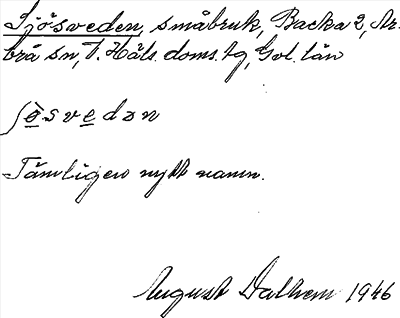 Sjösveden, småbruk, Backa 2, Ar-
brå sn, V. Häls. doms. tg, Gvl. län
ʃø̀svedən
Tämligen nytt namn.
August Dalhem 1946